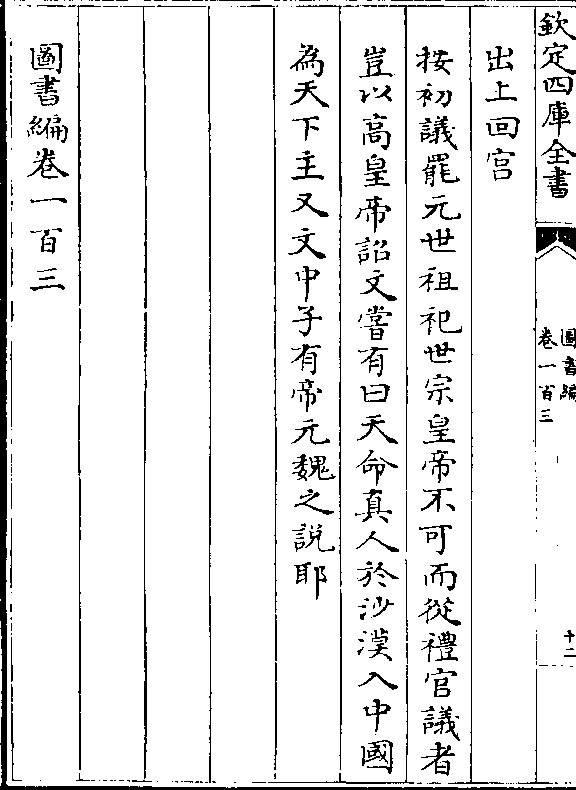 欽定四庫全書
圖書編
卷一百三
十二
出上回宫
按初議罷元世祖祀世宗皇帝不可而從禮官議者
豈以高皇帝詔文嘗有曰天命真人於沙漠入中國
為天下主又文中子有帝元魏之説耶
圖書編卷一百三